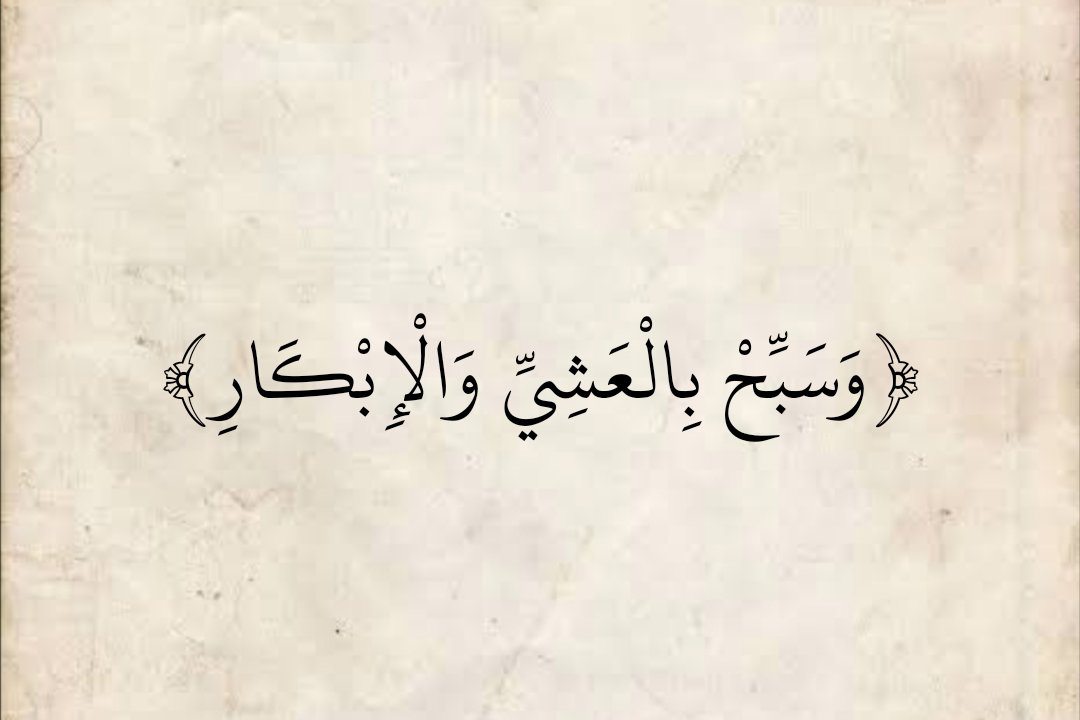 ﴿ وَسَبِّحْ بِالْعَشِيِّ وَالْإِبْكَارِ ﴾